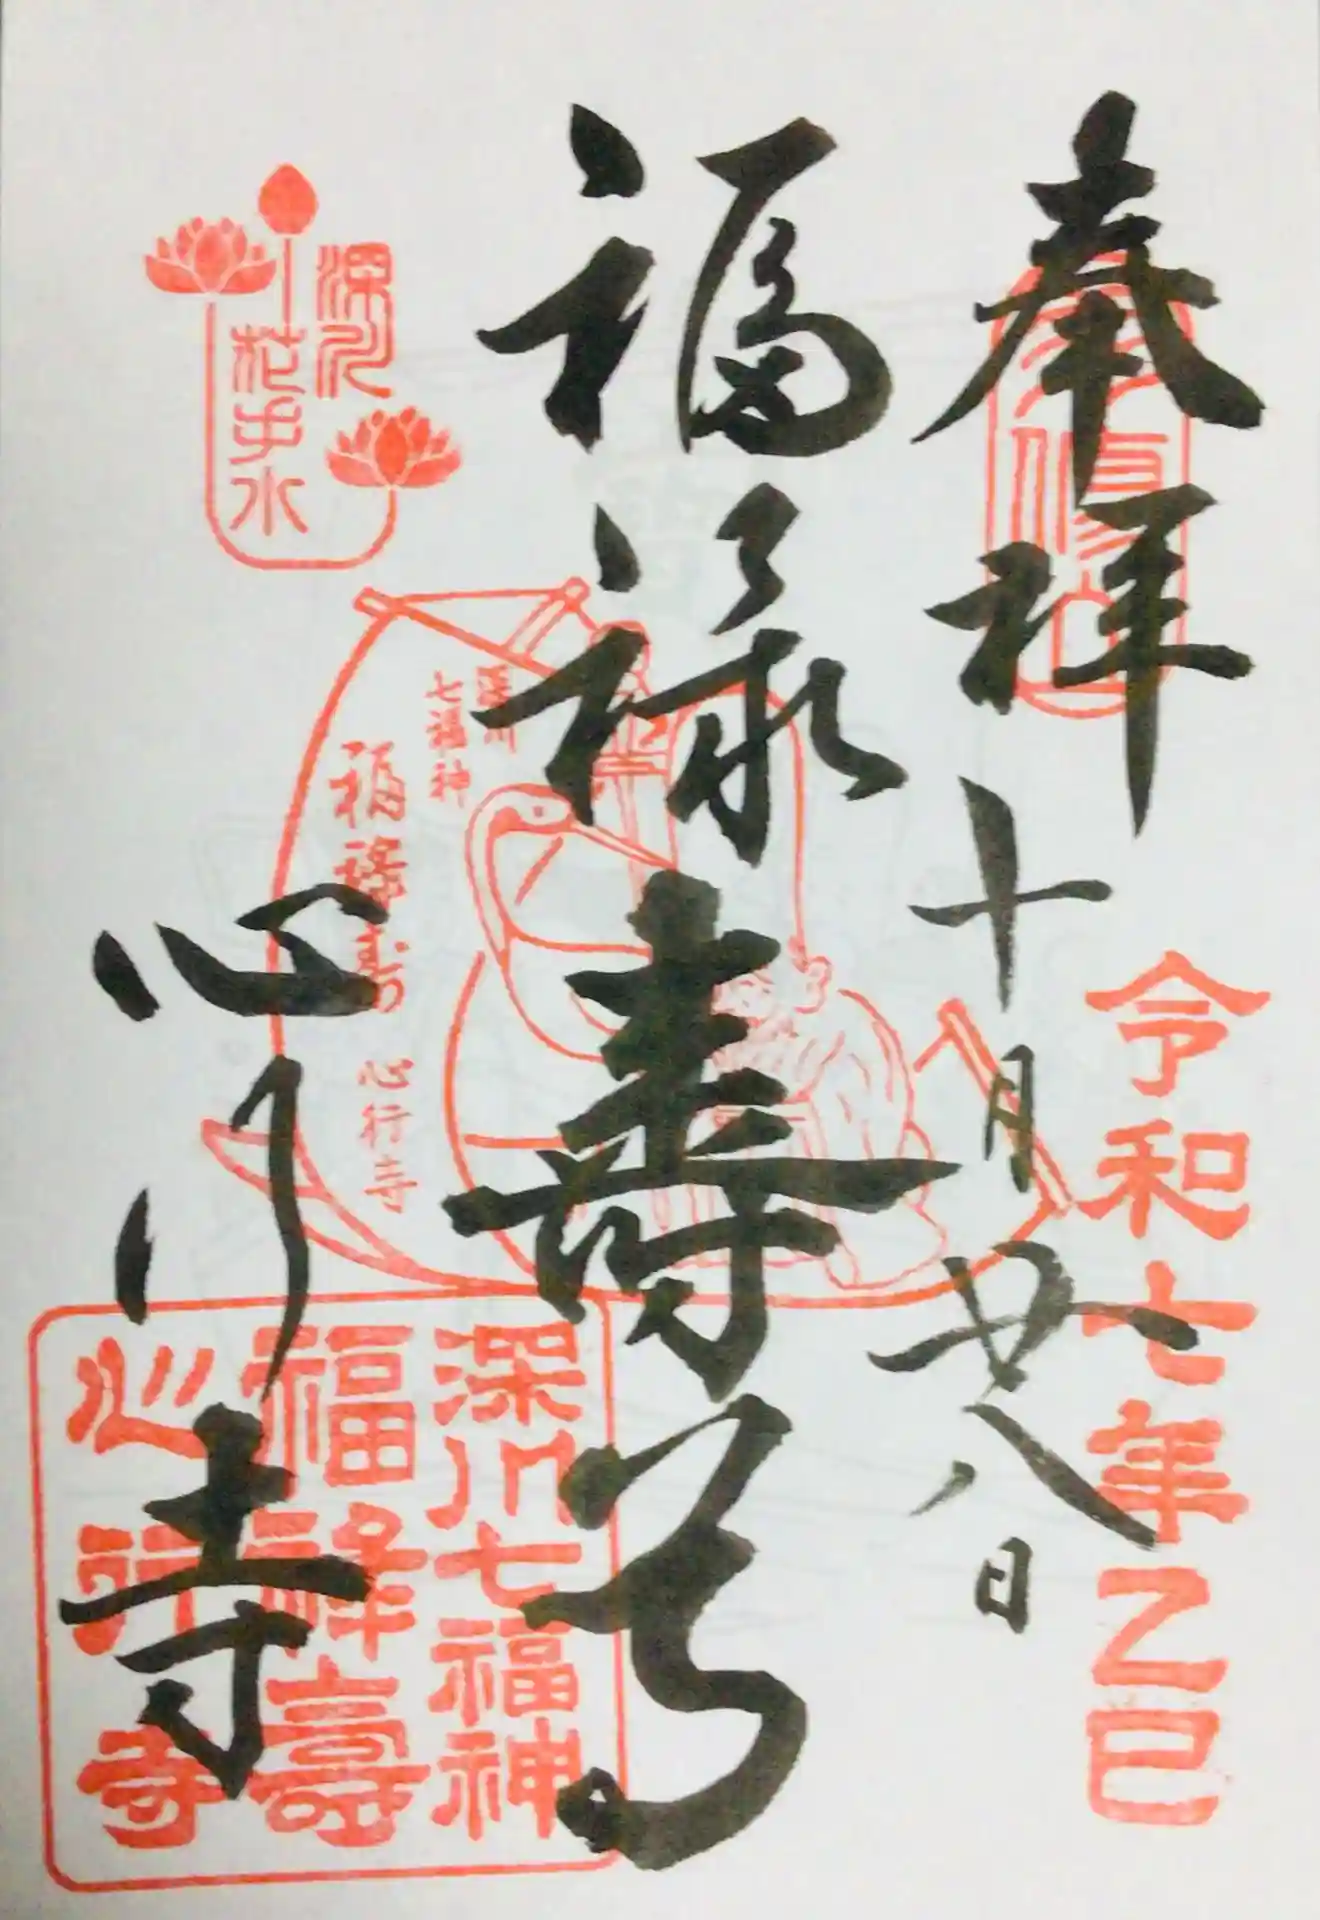 奉拝
十月廿八日
令和七年乙巳
福禄寿尊
心行寺
深川
花手水
深川
七福神
福禄寿
心行寺
深川七福神
福祿壽
心行寺